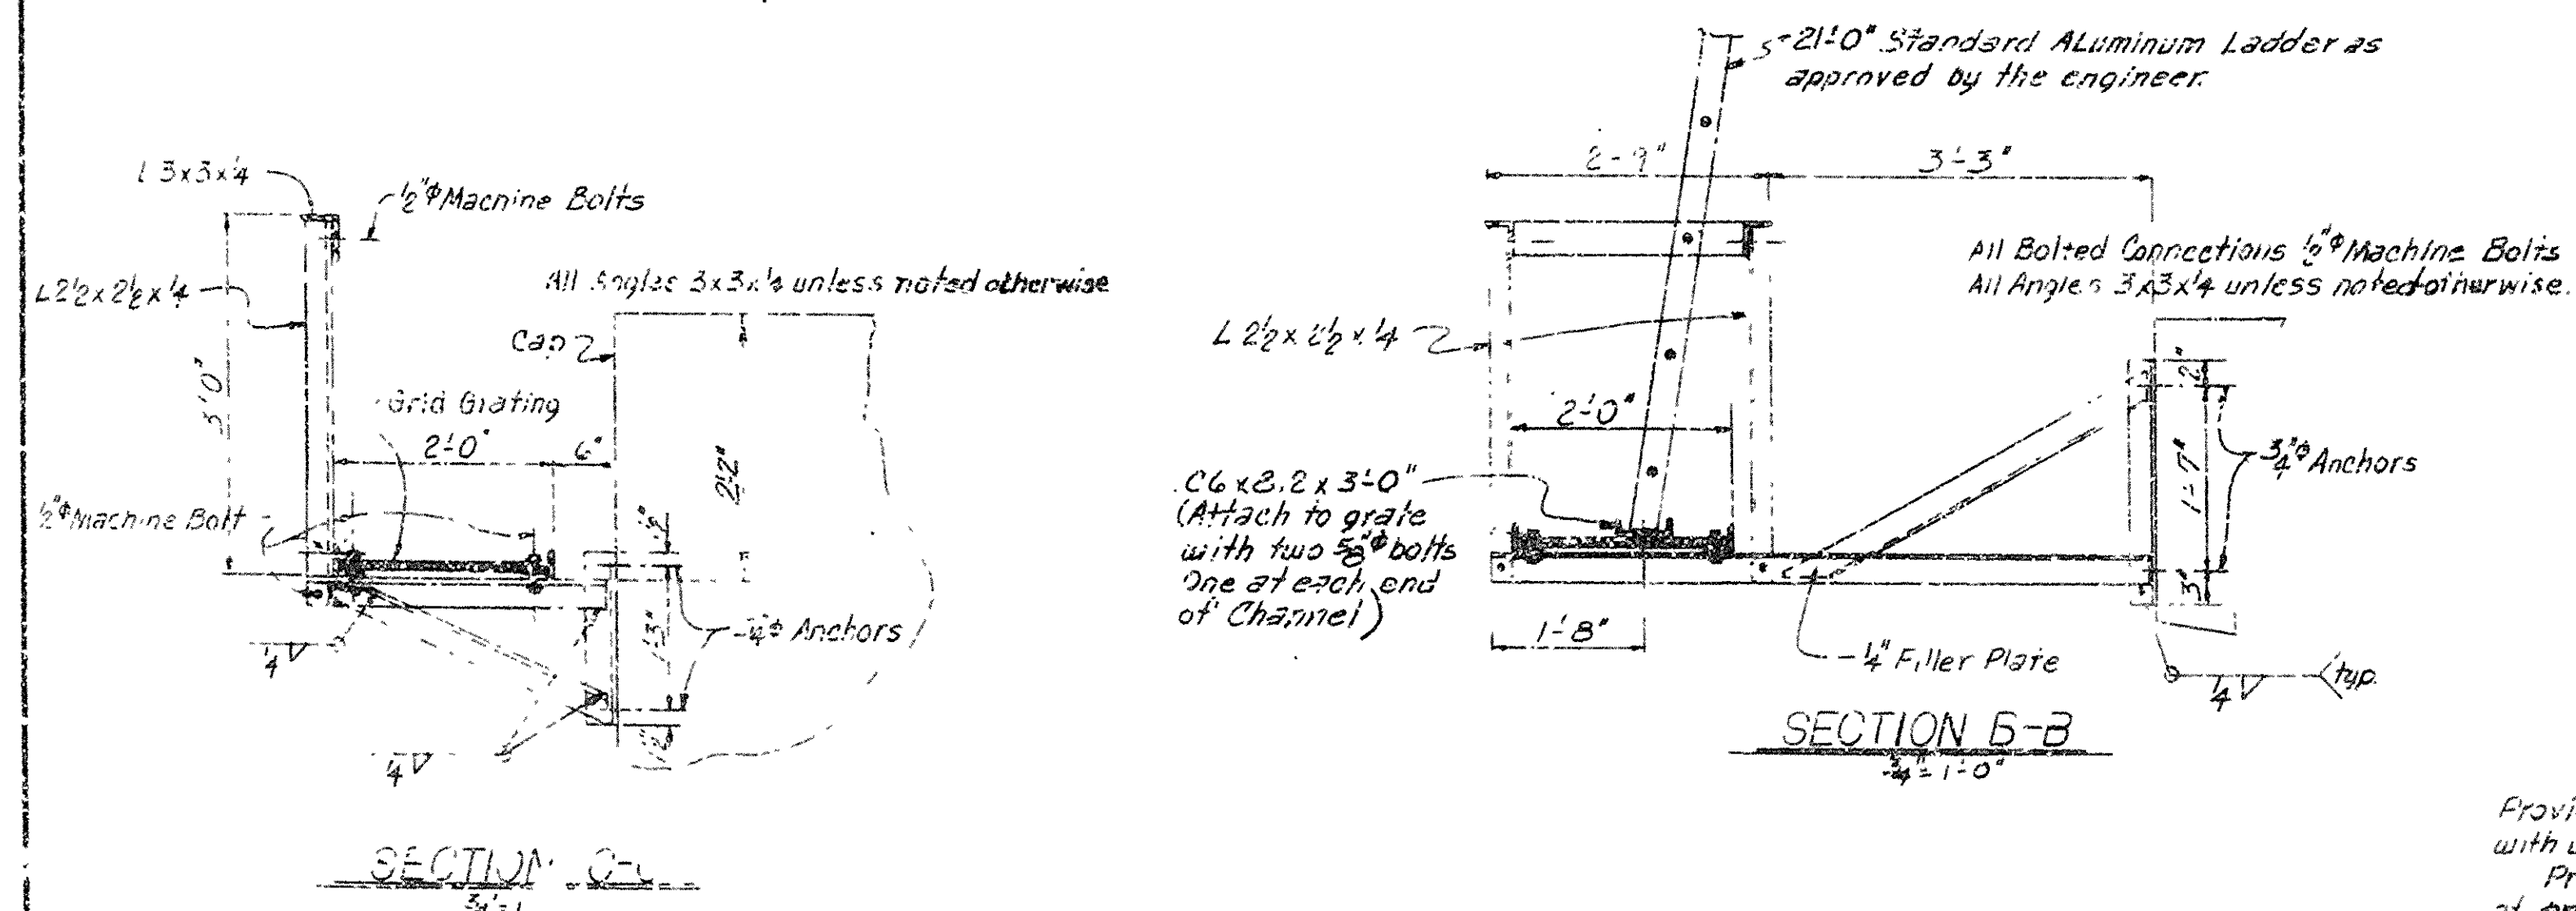 L 3x3x¼
½"φ Machine Bolts
L2½x2½x¼
All Angles 3x3x¼ unless noted otherwise
Cap
3'0"
Grid Grating
2'-0"
6"
2'-2"
½"φ Machine Bolt
1'-3"
Anchors
¼
¼
SECTION C-
21'-0" Standard ALuminum Ladder as
approved by the engineer.
2-9"
3'-3"
All Bolted Connections ½"φ Machine Bolts
All Angles 3x3x¼ unless noted otherwise.
L 2½ x 2½ x ¼
2"
2'-0"
¾"φ Anchors
1'-7"
C6 x 8.2 x 3'-0"
(Attach to grate
with two ⅝"φ bolts
One at each end
of Channel)
3"
1'-8"
¼" Filler Plate
¼
typ.
SECTION B-B
¾" = 1'-0"
with